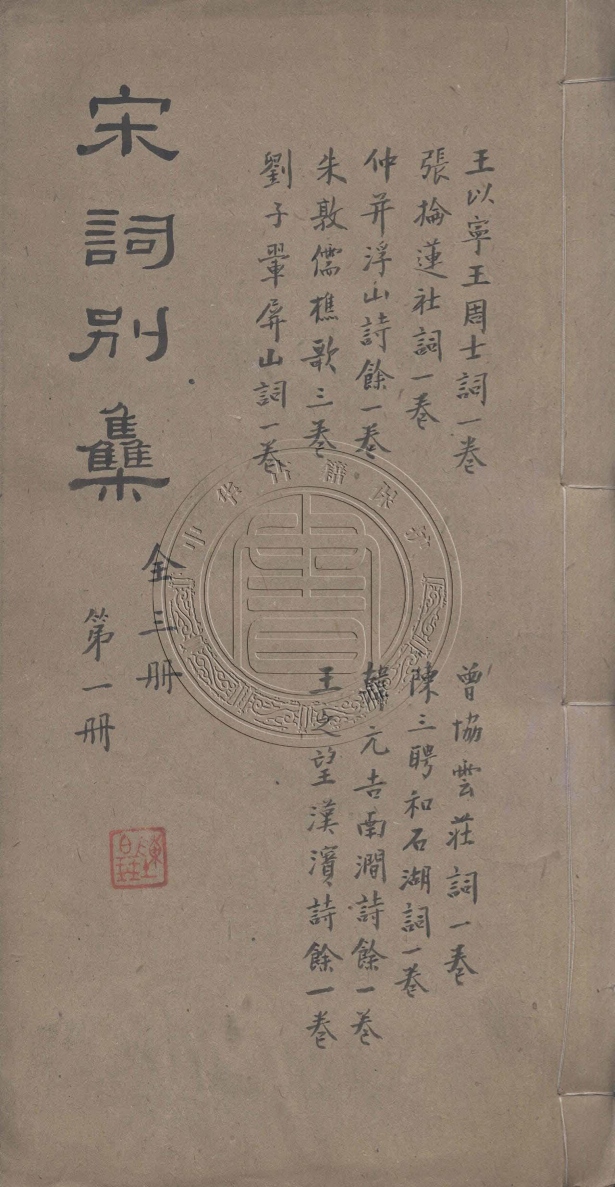 王以寧王周士詞一卷
張掄蓮社詞一卷
仲并浮山詩餘一卷
朱敦儒樵歌三卷
劉子翬屏山詞一卷
曾協雲莊詞一卷
陳三聘和石湖詞一卷
韓元吉南澗詩餘一卷
王之望漢濱詩餘一卷
宋詞別集
全三冊
第一冊